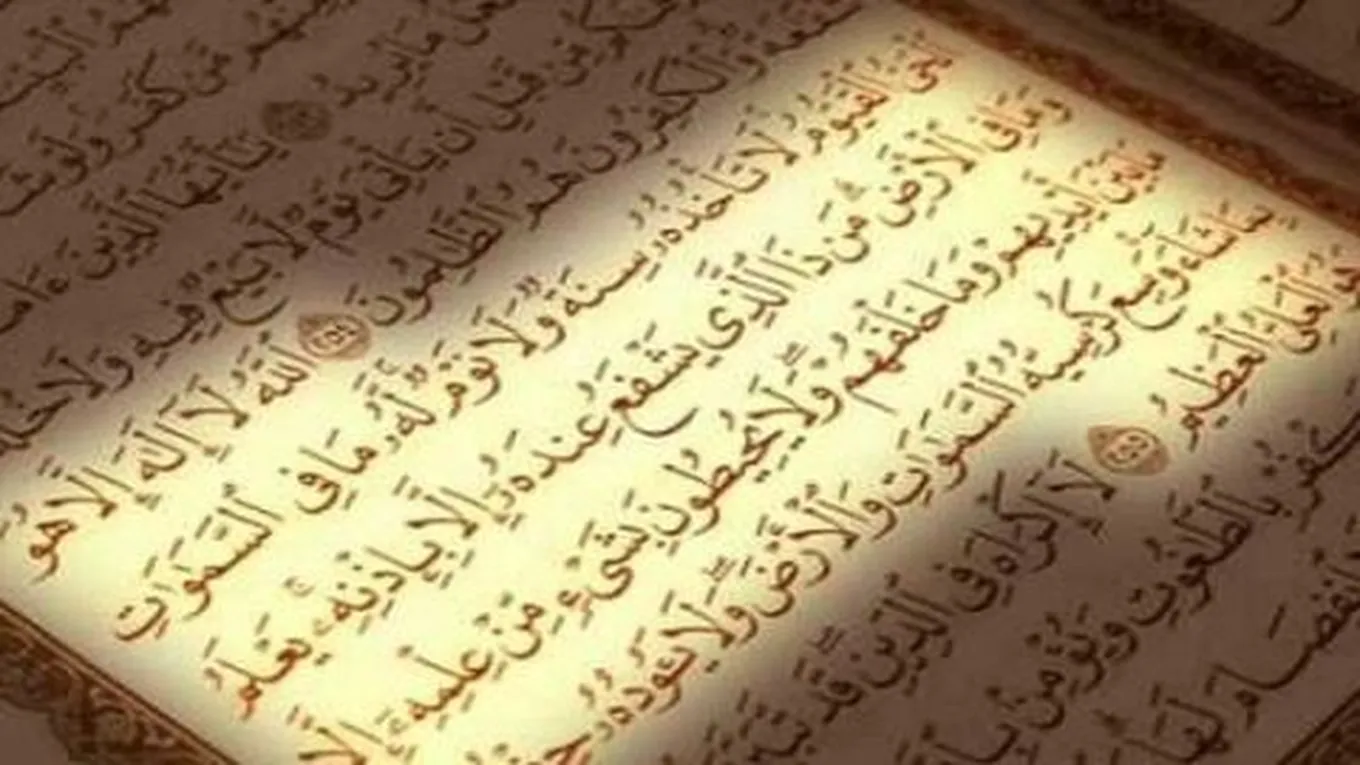 مَّن كَفَرَ وَلَوْ شَا
مَا يُرِيدُ ۝ يَٰٓأَيُّهَا ٱلَّذِينَ ءَامَ
مِّن قَبْلِ أَن يَأْتِيَ يَوْمٌ لَّا بَيْعٌ فِيهِ وَلَا خُلَّةٌ
وَٱلْكَٰفِرُونَ هُمُ ٱلظَّٰلِمُونَ ۝٢٥٤ ٱللَّهُ لَآ إِلَٰهَ إِلَّا هُوَ
ٱلْحَىُّ ٱلْقَيُّومُ لَا تَأْخُذُهُۥ سِنَةٌ وَلَا نَوْمٌ لَّهُۥ مَا فِى ٱلسَّمَٰوَٰتِ
وَمَا فِى ٱلْأَرْضِ مَن ذَا ٱلَّذِى يَشْفَعُ عِندَهُۥٓ إِلَّا بِإِذْنِهِۦ يَعْلَمُ
مَا بَيْنَ أَيْدِيهِمْ وَمَا خَلْفَهُمْ وَلَا يُحِيطُونَ بِشَىْءٍ مِّنْ عِلْمِهِۦٓ إِلَّا
بِمَا شَآءَ وَسِعَ كُرْسِيُّهُ ٱلسَّمَٰوَٰتِ وَٱلْأَرْضَ وَلَا يَـُٔودُهُۥ حِفْظُ
ٱلْعَلِىُّ ٱلْعَظِيمُ ۝٢٥٥ لَآ إِكْرَاهَ فِى ٱلدِّينِ قَد تَّبَيَّ
يَكْفُرْ بِٱلطَّٰغُوتِ وَيُؤْمِنۢ بِٱل
ٱنفِصَامَ لَهَا